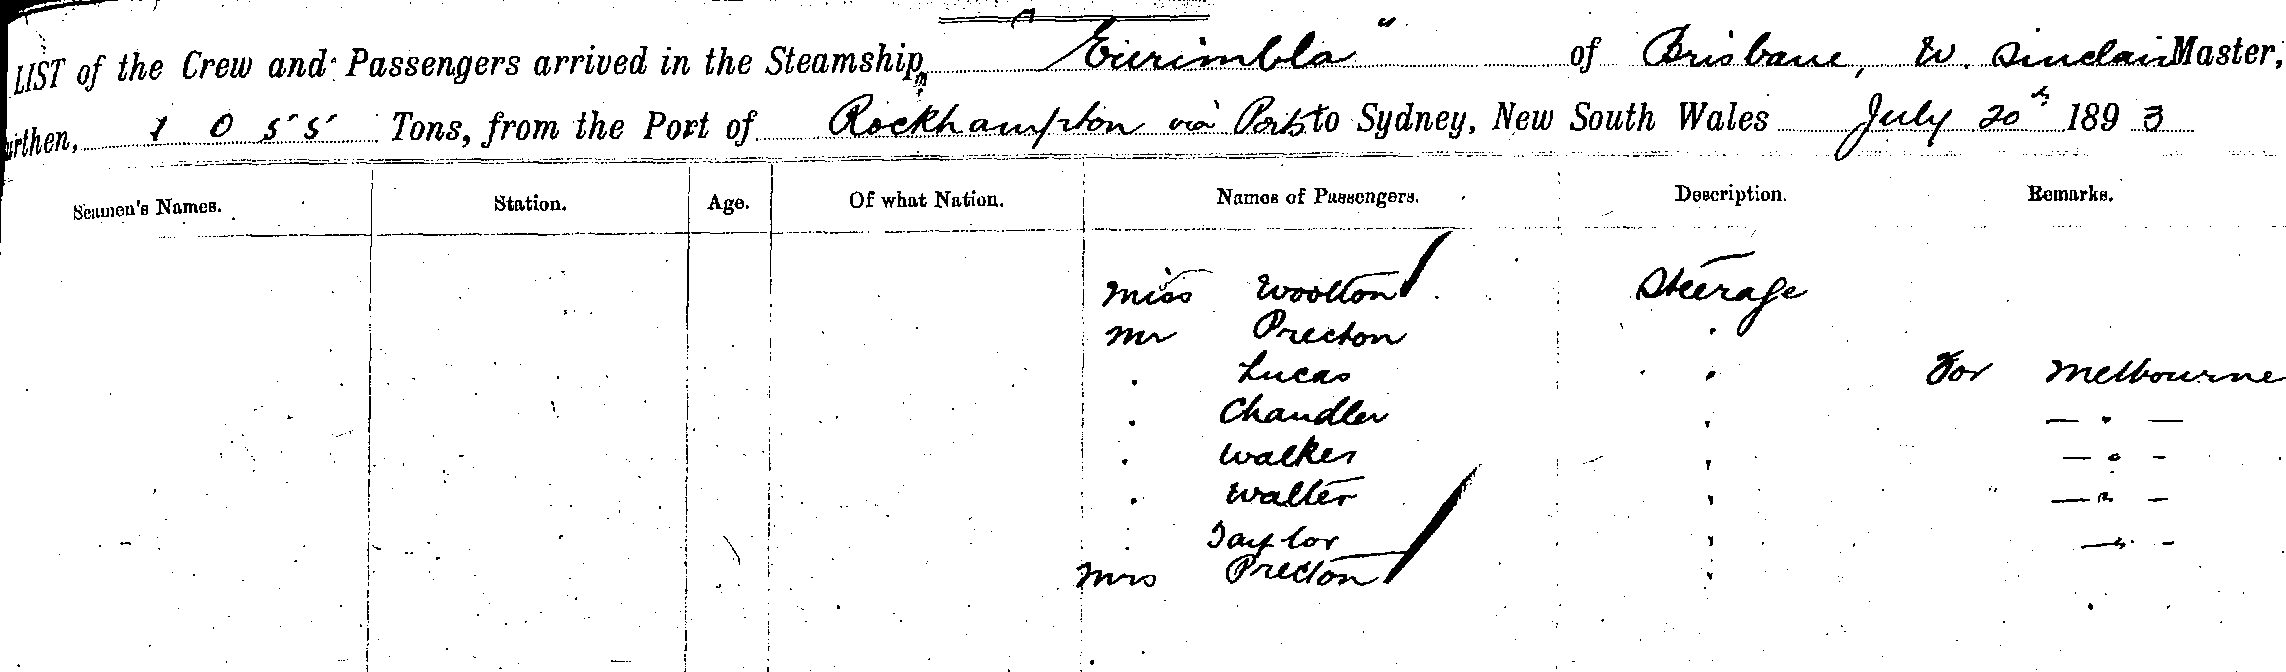 LIST of the Crew and Passengers arrived in the Steamship "Eurimbla" of Brisbane, W. Sinclair Master,
urthen, 1055 Tons, from the Port of Rockhampton via Ports to Sydney, New South Wales July 20th 1893
Seamen's Names. Station. Age. Of what Nation. Names of Passengers. Description. Remarks.
Miss Woolton Steerage
Mr Precton "
" Lucas " For Melbourne
" Chandler " — " —
" Walker " — " —
" Walter " — " —
" Taylor " — " —
Mrs Precton "